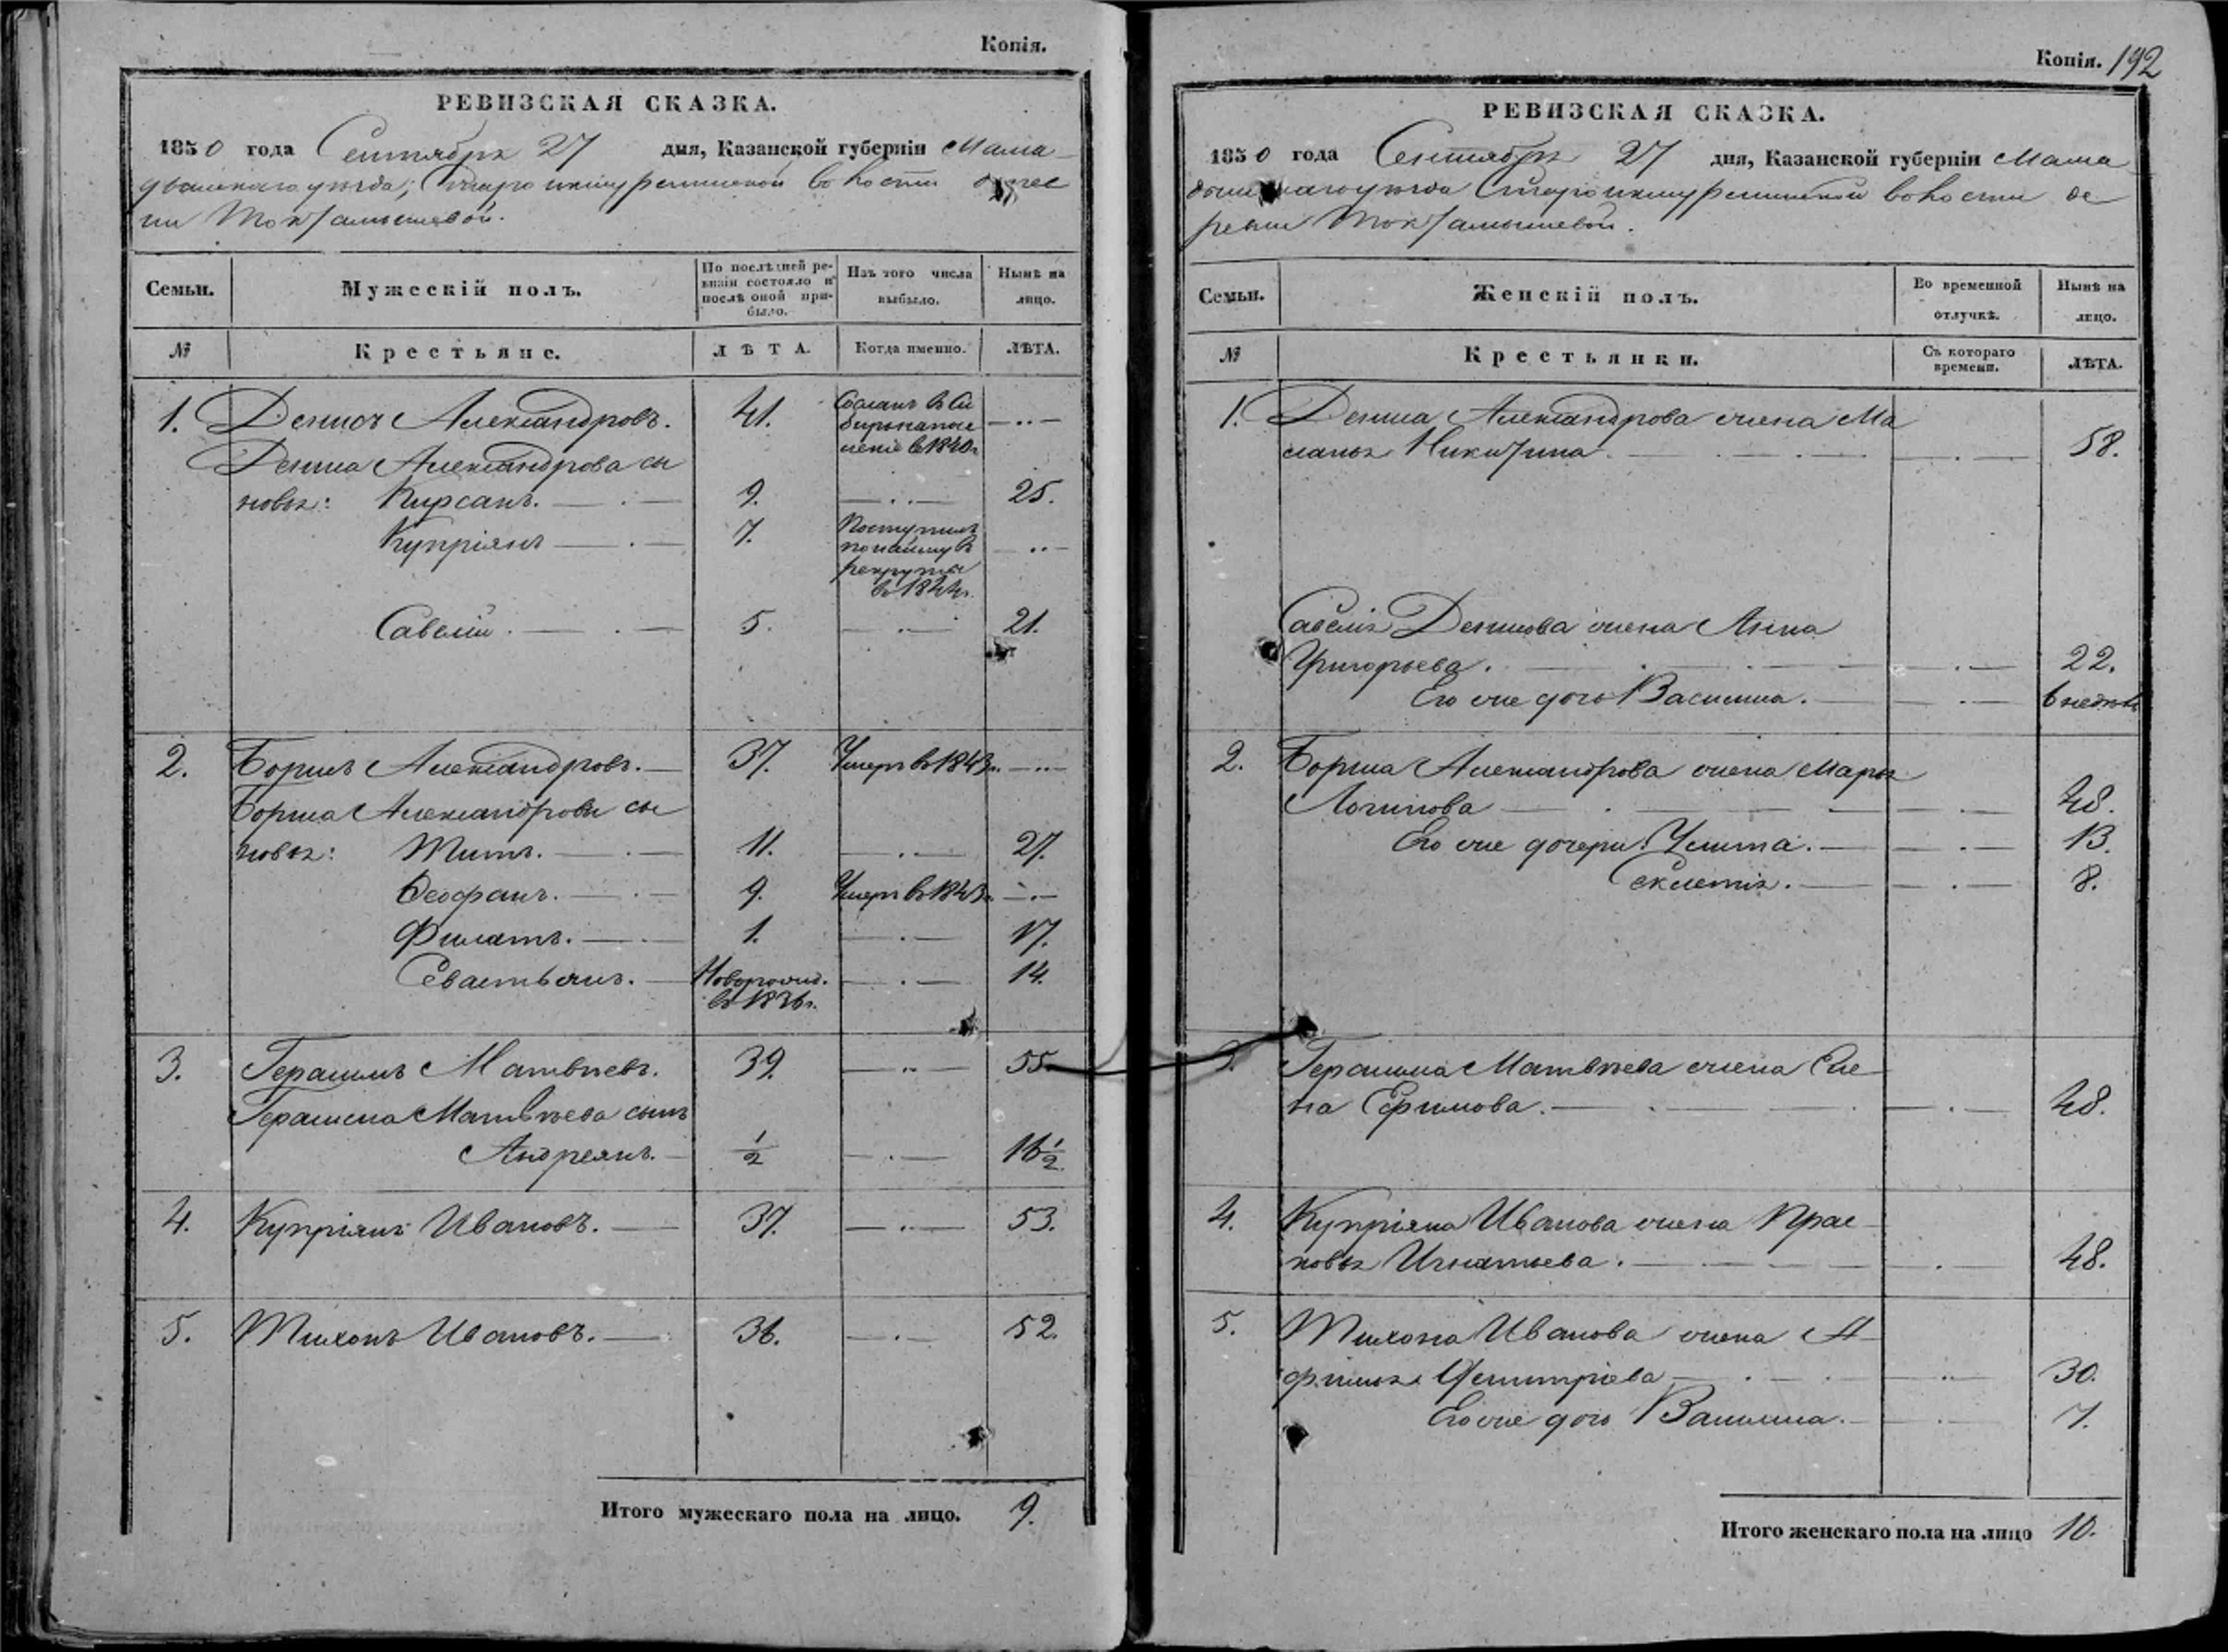 Копія.
РЕВИЗСКАЯ СКАЗКА.
1850 года Сентября 27 дня, Казанской губерніи Мама-
дышскаго уѣзда; волости
ни Токталышевой.
Семьи. Мужескій полъ. По послѣдней ре-визіи состояло и послѣ оной при-было. Изъ того числа выбыло. Нынѣ на лицо.
№ Крестьяне. ЛѢТА. Когда именно. ЛѢТА.
1. Денисъ Александровъ. 41. Сосланъ въ Си
бирь на посе
леніе въ 1840г.
Дениса Александрова сы
новья: Кирсанъ. 9. 25.
Купріянъ 7. Поступилъ
по найму въ
рекруты
въ 1844г.
Савелій. 5. 21.
2. Борисъ Александровъ. 37. Умеръ въ 1843г.
Бориса Александрова сы
новья: Титъ. 11. 27.
Ѳеофанъ. 9. Умеръ въ 1843г.
Филатъ. 1. 17.
Севастьянъ. Новорожд. 14.
въ 1836г.
3. Герасимъ Матвѣевъ. 39. 55.
Герасима Матвѣева сынъ
Андреянъ. 1/2 16 1/2.
4. Купріянъ Ивановъ. 37. 53.
5. Тихонъ Ивановъ. 36. 52.
Итого мужескаго пола на лицо. 9.
Копія. 192
РЕВИЗСКАЯ СКАЗКА.
1850 года Сентября 27 дня, Казанской губерніи Мама
дышскаго уѣзда волости де
ревни Токталышевой.
Семьи. Женскій полъ. Во временной отлучкѣ. Нынѣ на лицо.
№ Крестьянки. Съ котораго времени. ЛѢТА.
1. Дениса Александрова жена Ма
ланья Никитина. 58.
Савелья Денисова жена Анна
Григорьева. 22.
Его же дочь Василиса. 6 недѣль
2. Бориса Александрова жена Марья
Логинова 48.
Его же дочери: Улита. 13.
Секлетія. 8.
3. Герасима Матвѣева жена Еле-
на Ефимова. 48.
4. Купріяна Иванова жена Прас-
ковья Игнатьева. 48.
5. Тихона Иванова жена А-
фимья Дмитріева 30.
Его же дочь Василиса. 7.
Итого женскаго пола на лицо 10.